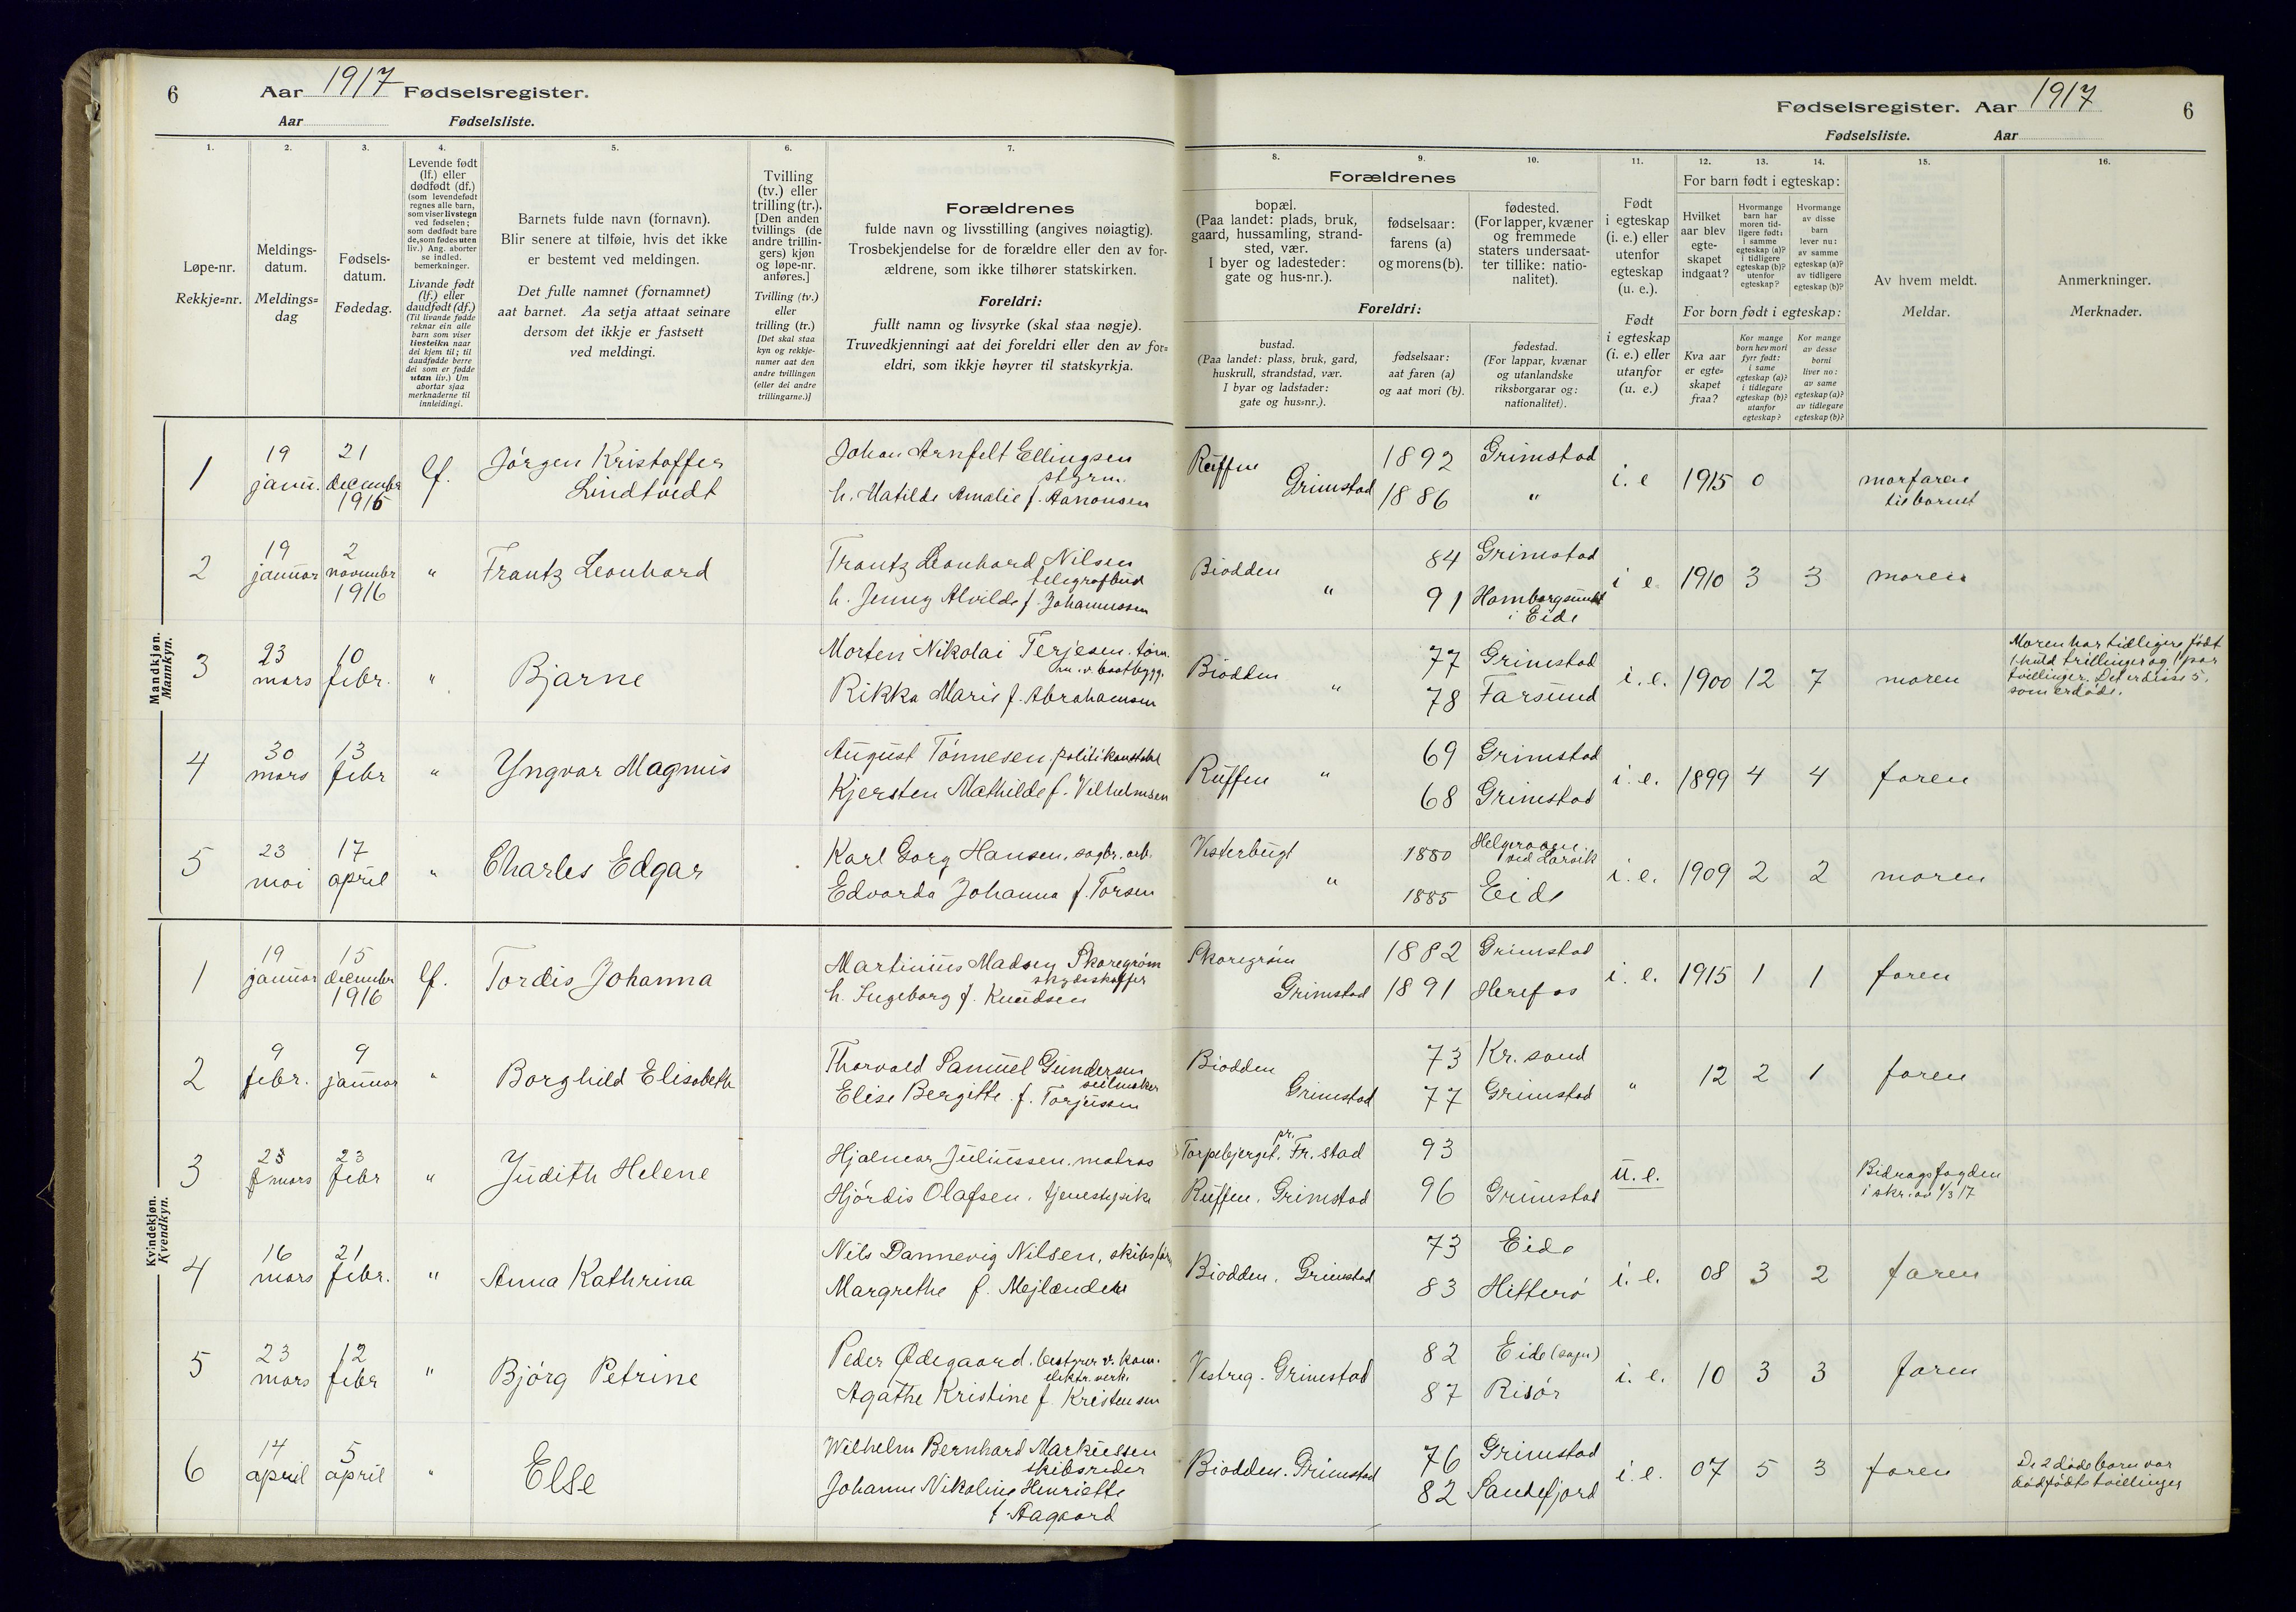 6 Aar 1917 Fødselsregister.
Aar Fødselsliste.
Fødselsregister. Aar 1917 6
Fødselsliste. Aar
1. 2. 3. 4. 5. 6. 7. 8. 9. 10. 11. 12. 13. 14. 15. 16.
Løpe-nr.
Rekkje=nr.
Meldings-
datum.
Meldings=
dag
Fødsels-
datum.
Fødedag.
Levende født
(lf.) eller
dødfødt (df.)
(som levendefødt
regnes alle barn,
som viser livstegn
ved fødselen;
som dødfødt bare
de, som fødes uten
liv.) Ang. aborter
se indled.
bemerkninger.
Livande født
(lf.) eller
daudfødt (df.)
(Til livande fødde
reknar ein alle
barn som viser
livsteikn naar
dei kjem til; til
daudfødde berre
dei som er fødde
utan liv.) Um
abortar sjaa
merknaderne til
innleidingi.
Barnets fulde navn (fornavn).
Blir senere at tilføie, hvis det ikke
er bestemt ved meldingen.
Det fulle namnet (fornamnet)
aat barnet. Aa setja attaat seinare
dersom det ikkje er fastsett
ved meldingi.
Tvilling
(tv.) eller
trilling (tr.).
[Den anden
tvillings (de
andre trillin-
gers) kjøn
og løpe-nr.
anføres.]
Tvilling (tv.)
eller
trilling (tr.)
[Det skal staa
kyn og rekkje-
numer aat den
andre tvillingen
(eller dei andre
trillingarne.)]
Forældrenes
fulde navn og livsstilling (angives nøiagtig).
Trosbekjendelse for de forældre eller den av for-
ældrene, som ikke tilhører statskirken.
Foreldri:
fullt namn og livsyrke (skal staa nøgje).
Truvedkjenningi aat dei foreldri eller den av for=
eldri, som ikkje høyrer til statskyrkja.
Forældrenes
bopæl.
(Paa landet: plads, bruk,
gaard, hussamling, strand-
sted, vær.
I byer og ladesteder:
gate og hus-nr.).
fødselsaar:
farens (a)
og morens (b).
fødested.
(For lapper, kvæner
og fremmede
staters undersaat-
ter tillike: natio-
nalitet).
Foreldri:
bustad.
(Paa landet: plass, bruk, gard,
huskrull, strandstad, vær.
I byar og ladstader:
gate og hus=nr.).
fødselsaar:
aat faren (a)
og aat mori (b).
fødestad.
(For lappar, kvænar
og utanlandske
riksborgarar og:
nationalitet).
Født
i egteskap
(i. e.) eller
utenfor
egteskap
(u. e.).
Født
i egteskap
(i. e.) eller
utanfor
(u. e.)
For barn født i egteskap:
Hvilket
aar blev
egte-
skapet
indgaat?
Hvormange
barn har
moren tid-
ligere født:
i samme
egteskap (a)?
i tidligere
egteskap (b)?
utenfor
egteskap?
Hvormange
av disse
barn
lever nu:
av samme
egteskap (a)?
av tidligere
egteskap (b)?
For born født i egteskap:
Kva aar
er egte=
skapet
fraa?
Kor mange
born hev mori
fyrr født:
i same
egteskap (a)?
i tidlegare
egteskap (b)?
utanfor
egteskap?
Kor mange
av desse
borni
liver no:
av same
egteskap (a)?
av tidlegare
egteskap (b)?
Av hvem meldt.
Meldar.
Anmerkninger.
Merknader.
Mandkjøn.
Mannkyn.
1 19 janu. 21 december 1916 lf. Jørgen Kristoffer
Lindtvedt
Johan Arnfelt Ellingsen
styrm.
h. Matilde Amalie f. Aanonsen
Ruffen
Grimstad
1892 Grimstad
1886 "
i. e 1915 0 morfaren
til barnet
2 19 januar 2 november 1916 " Frantz Leonhard
Frantz Leonhard Nilsen
telegrafbud
h. Jenny Alvilde f. Johannessen
Biodden
"
84 Grimstad
91 Homborgsund
i Eide
i e. 1910 3 3 moren
3 23 mars 10 febr. " Bjarne
Morten Nikolai Terjesen. tøm.
m. v. baatbygg.
Rikka Marie f. Abrahamsen
Biodden
"
77 Grimstad
78 Farsund
i. e. 1900 12 7 moren
Moren har tidligere født
1 kuld trillinger og 1 par
tvillinger. Det er disse 5,
som er døde.
4 30 mars 13 febr " Yngvar Magnus
August Tønnesen, politikonstabel
Kjersten Mathilde f. Vilhelmsen
Ruffen "
69 Grimstad
68 Grimstad
i. e. 1899 4 4 faren
5 23 mai 17 april " Charles Edgar
Karl Georg Hansen, sagbr. arb.
Edvarda Johanna f. Torsen
Vesterbugt
"
1880 Helgeroaen
ved Larvik
1885 Eide
i. e. 1909 2 2 moren
Kvindekjøn.
Kvendkyn.
1 19 januar 15 december 1916 lf. Tordis Johanna
Martinius Madsen Skaregrøm
skydsskaffer
h. Ingeborg f. Knudsen
Skaregrøm
Grimstad
1882 Grimstad
1891 Herefos
i. e. 1915 1 1 faren
2 9 febr. 9 januar " Borghild Elisabeth
Thorvald Samuel Gundersen
seilmaker
Elise Bergitte. f. Torjussen
Biodden
Grimstad
73 Kr. sand
77 Grimstad
" 12 2 1 faren
3 23 mars 23 febr " Judith Helene
Hjalmar Juliussen, matros
Hjørdis Olafsen. tjenestepike
Torpebjerget. pr. Fr. stad
Ruffen. Grimstad
93
96 Grimstad
u. e.
Bidragsfogden
i skr. av 1/3 17
4 16 mars 21 febr. " Anna Kathrina
Nils Dannevig Nilsen, skibsfør
Margrethe f. Mejlænder
Biodden. Grimstad
73 Eide
83 Hitterø
i. e. 08 3 2 faren
5 23 mars 12 febr " Bjørg Petrine
Peder Ødegaard. bestyrer v. kom.
elektr. verk.
Agathe Kristine f. Kristensen
Vestreg. Grimstad
82 Eide (sogn)
87 Risør
i. e. 10 3 3 faren
6 14 april 5 april " Else
Wilhelm Bernhard Markussen
skibsreder
Johanne Nikoline Henriette
f. Aagaard
Biodden. Grimstad
76 Grimstad
82 Sandefjord
i. e. 07 5 3 faren
De 2 døde barn var
dødfødte tvillinger